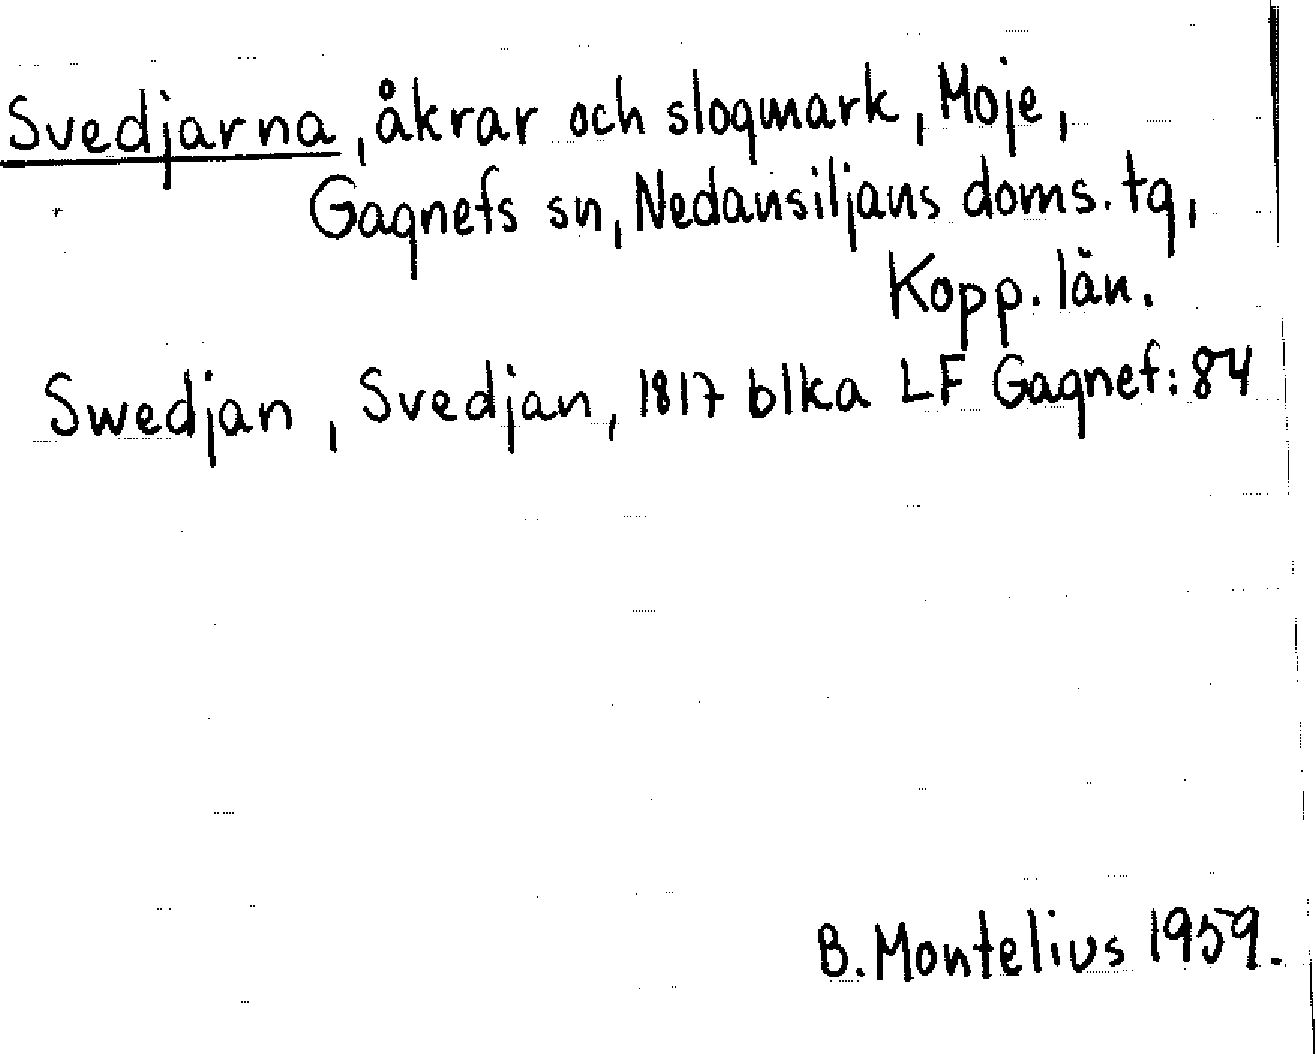 Svedjarna, åkrar och slogmark, Moje,
Gagnefs sn, Nedansiljans doms. tg,
Kopp. län.
Swedjan, Svedjan, 1817 blka LF Gagnef: 84
B. Montelius 1959.